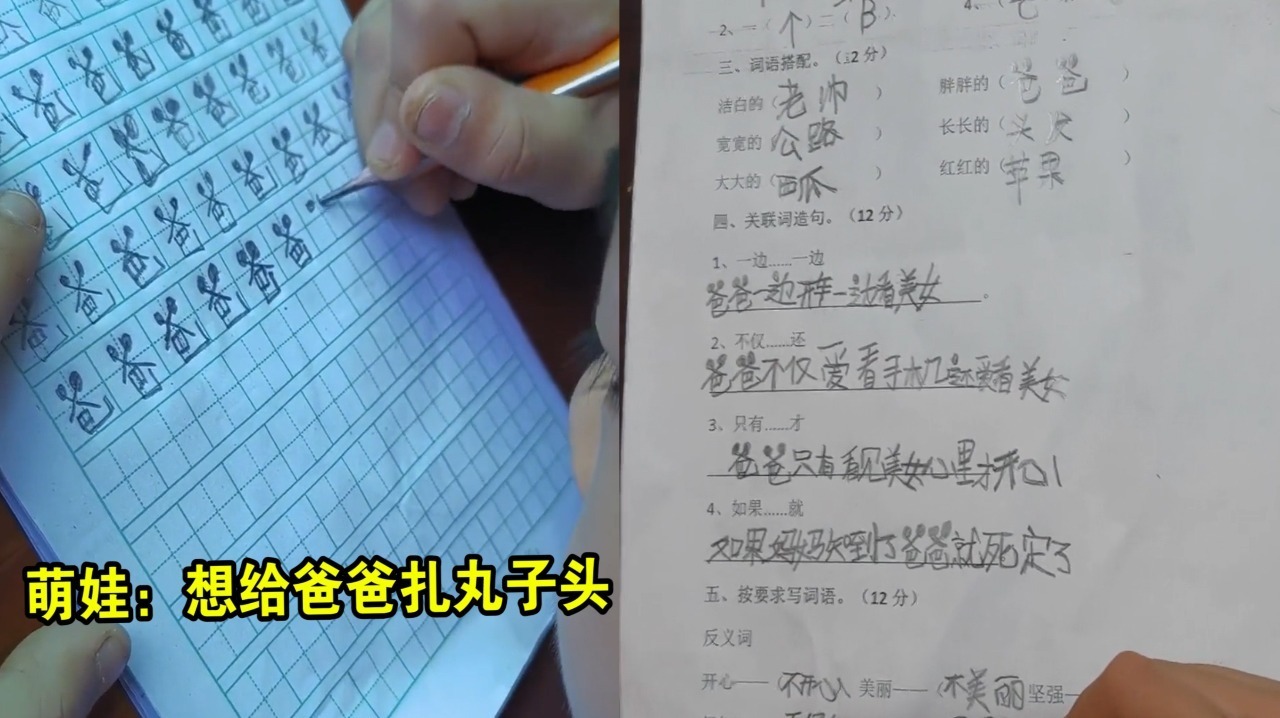 爸 爸 爸 爸 爸
萌娃：想给爸爸扎丸子头
2、一（个）二（B）
三、词语搭配。（12分）
洁白的（老师） 胖胖的（爸爸）
宽宽的（公路） 长长的（头发）
大大的（西瓜） 红红的（苹果）
四、关联词造句。（12分）
1、一边……一边
爸爸一边开车一边看美女。
2、不仅……还
爸爸不仅爱看手机还爱看美女
3、只有……才
爸爸只有看见美女心里才开心
4、如果……就
如果妈妈知到了爸爸就死定了
五、按要求写词语。（12分）
反义词
开心——（不开心） 美丽——（不美丽 坚强—